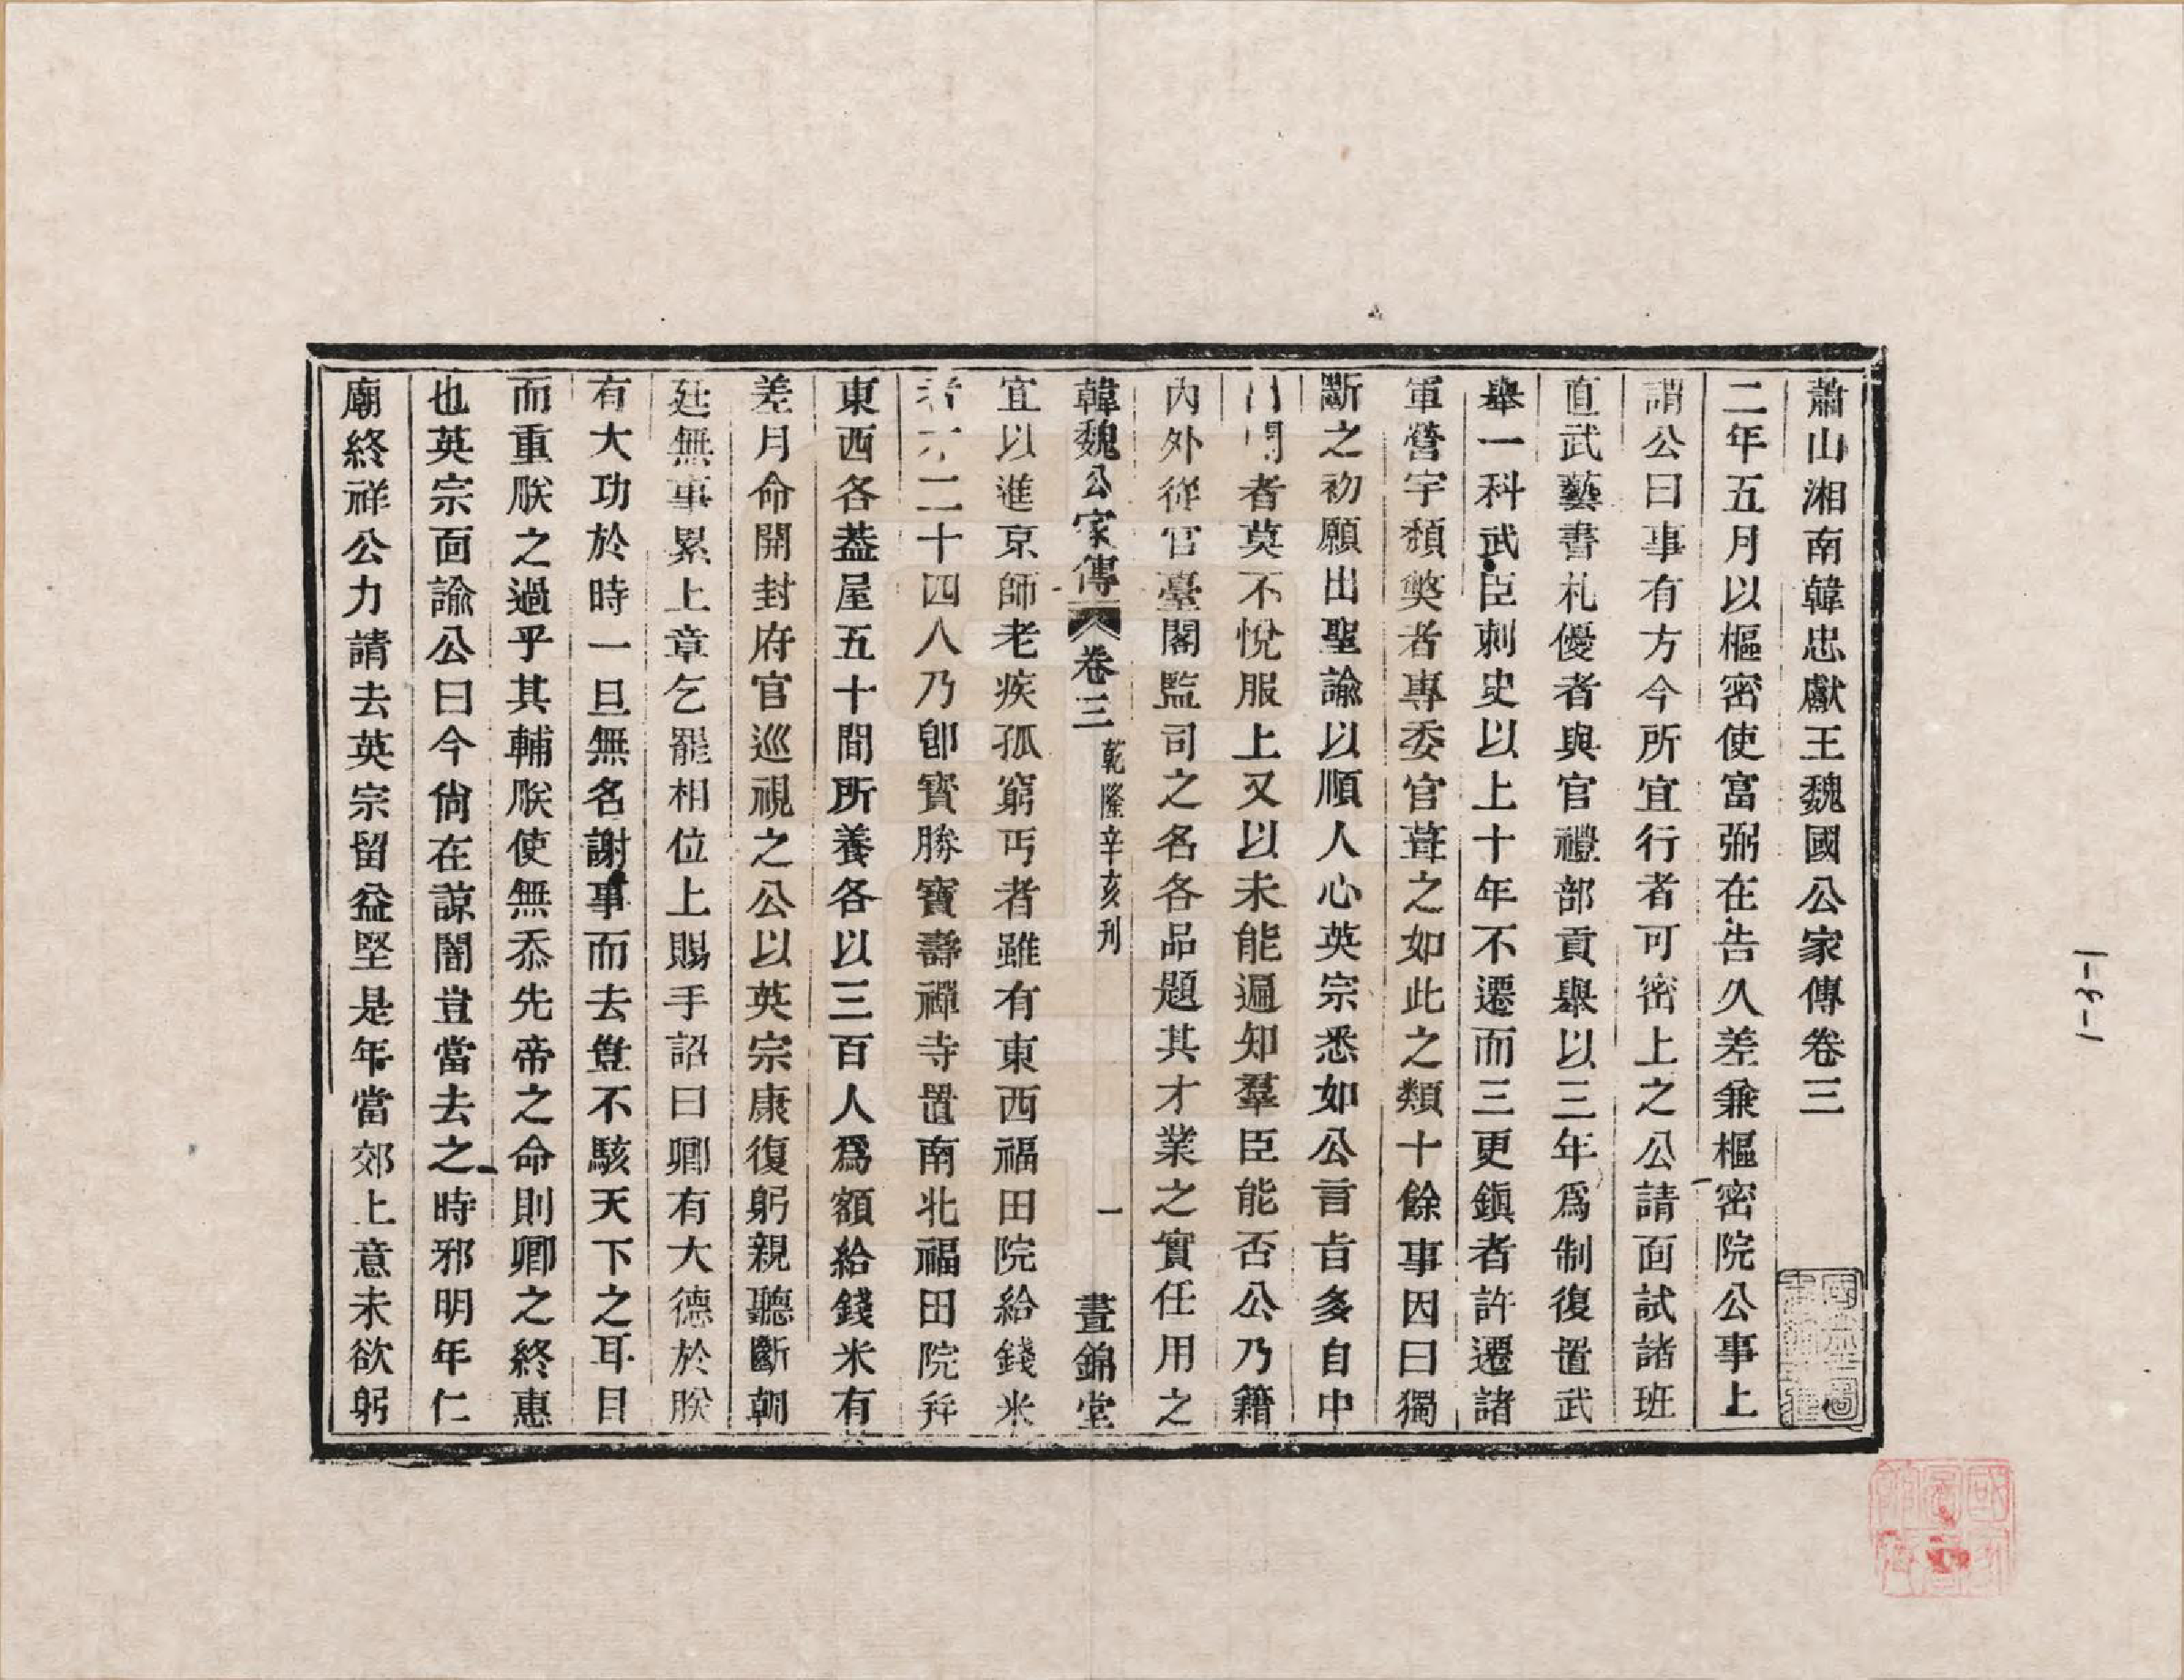 蕭山湘南韓忠獻王魏國公家傳卷三
二年五月以樞密使富弼在告久差兼樞密院公事上
謂公曰事有方今所宜行者可密上之公請面試諸班
直武藝書札優者與官禮部貢舉以三年爲制復置武
舉一科武臣刺史以上十年不遷而三更鎭者許遷諸
軍營宇頹獘者專委官葺之如此之類十餘事因曰獨
斷之初願出聖諭以順人心英宗悉如公言旨多自中
出聞者莫不悅服上又以未能遍知羣臣能否公乃籍
內外從官臺閣監司之名各品題其才業之實任用之
韓魏公家傳 卷三 乾隆辛亥刋 一 晝錦堂
宜以進京師老疾孤窮丐者雖有東西福田院給錢米
者才二十四人乃卽寶勝寶壽禪寺置南北福田院并
東西各葢屋五十間所養各以三百人爲額給錢米有
差月命開封府官巡視之公以英宗康復躬親聽斷朝
廷無事累上章乞罷相位上賜手詔曰卿有大德於朕
有大功於時一旦無名謝事而去豈不駭天下之耳目
而重朕之過乎其輔朕使無忝先帝之命則卿之終惠
也英宗面諭公曰今尙在諒闇豈當去之時邪明年仁
廟終祥公力請去英宗留益堅是年當郊上意未欲躬
1-3-1